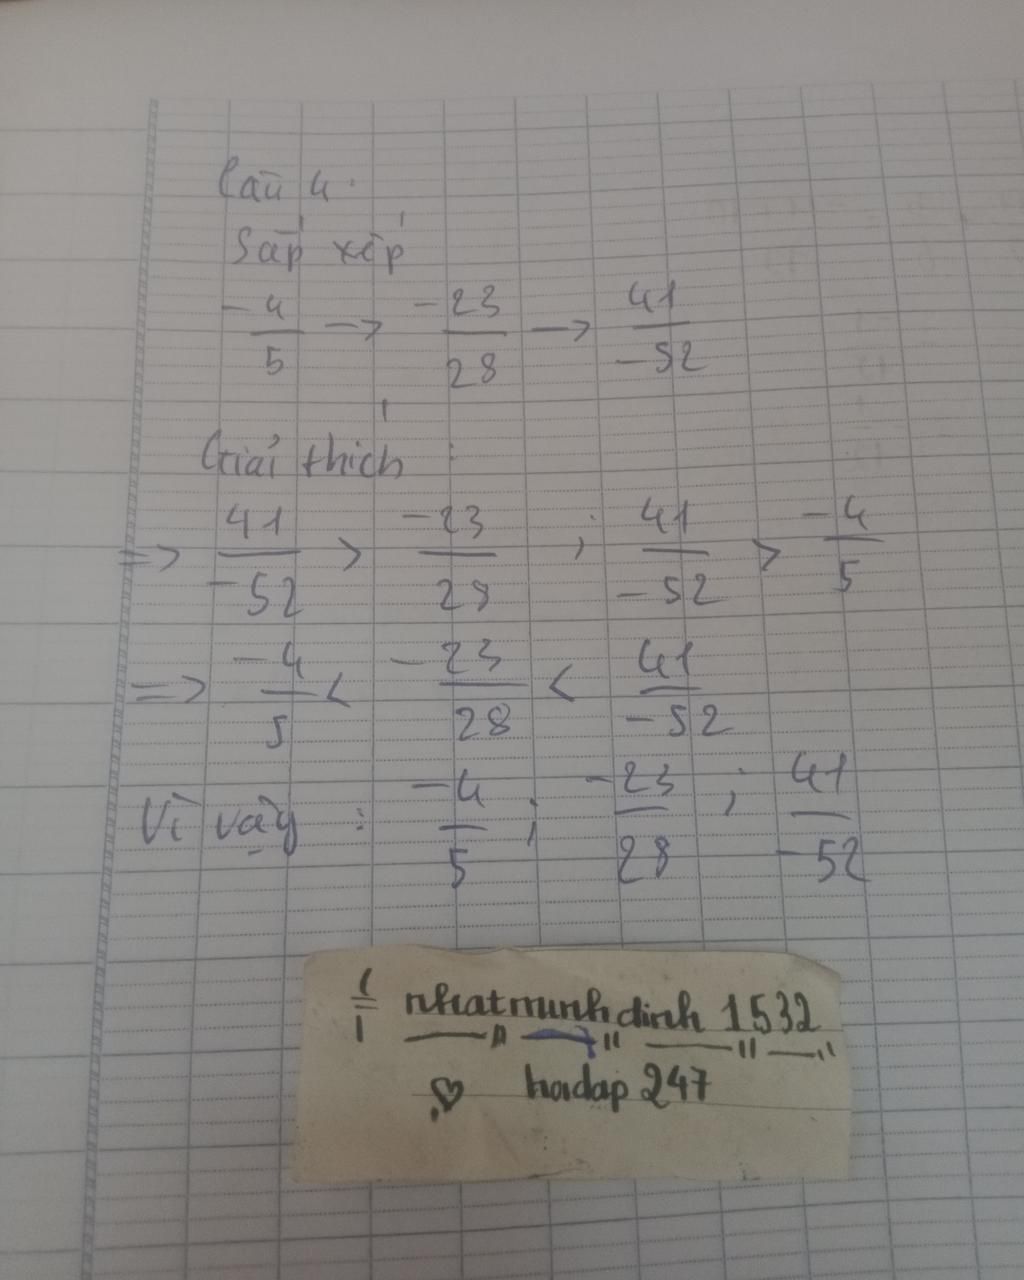 Câu 4:
Sắp xếp
-4/5 → -23/28 → 41/-52
Giải thích:
=> 41/-52 > -23/28 ; 41/-52 > -4/5
=> -4/5 < -23/28 < 41/-52
Vì vậy : -4/5 ; -23/28 ; 41/-52
nhatminhdinh 1532
hoidap 247